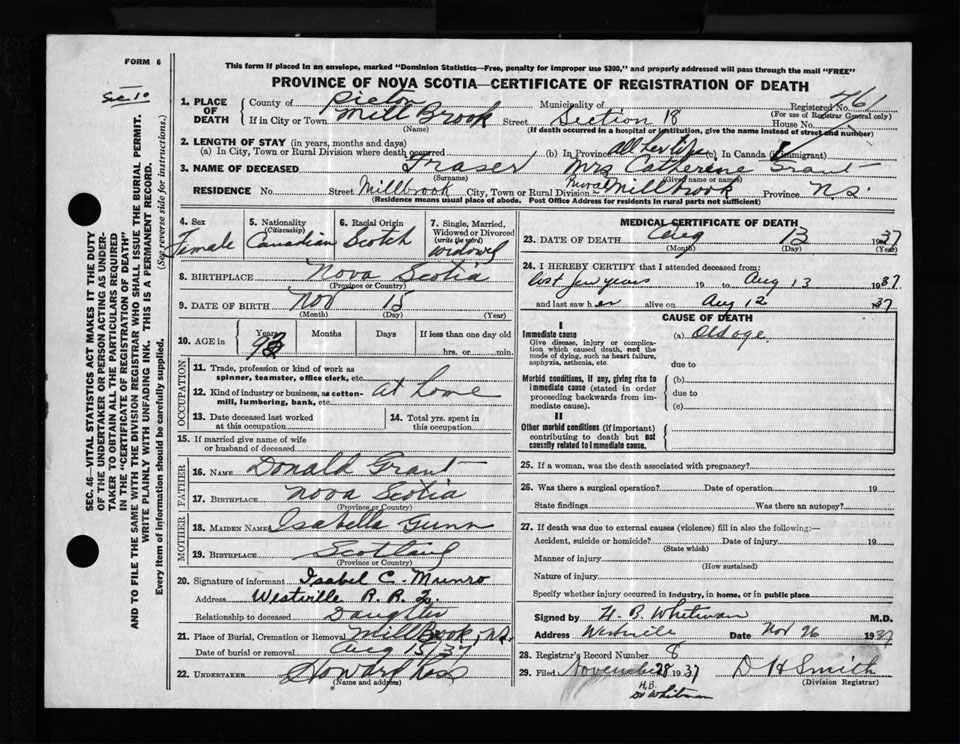 FORM 6
This form if placed in an envelope, marked "Dominion Statistics—Free, penalty for improper use $300," and properly addressed will pass through the mail "FREE"
PROVINCE OF NOVA SCOTIA—CERTIFICATE OF REGISTRATION OF DEATH
Sec 10
1. PLACE OF DEATH
County of Pictou Municipality of Registered No. 761
(For use of Registrar General only)
If in City or Town Mill Brook Street Section 18 House No.
(Name) (If death occurred in a hospital or institution, give the name instead of street and number)
2. LENGTH OF STAY (in years, months and days)
(a) In City, Town or Rural Division where death occurred (b) In Province All her life (c) In Canada (if immigrant)
3. NAME OF DECEASED Fraser Mrs Catherine Grant
(Surname) (Given name or names)
RESIDENCE No. Street Millbrook City, Town or Rural Division Rural Millbrook Province N.S.
(Residence means usual place of abode. Post Office Address for residents in rural parts not sufficient)
4. Sex Female
5. Nationality (Citizenship) Canadian
6. Racial Origin Scotch
7. Single, Married, Widowed or Divorced (write the word) widow
8. BIRTHPLACE Nova Scotia
(Province or Country)
9. DATE OF BIRTH Nov 15
(Month) (Day) (Year)
10. AGE in Years Months Days If less than one day old
hrs. or min.
OCCUPATION
11. Trade, profession or kind of work as spinner, teamster, office clerk, etc.
12. Kind of industry or business, as cotton-mill, lumbering, bank, etc. at home
13. Date deceased last worked at this occupation
14. Total yrs. spent in this occupation
15. If married give name of wife or husband of deceased
FATHER
16. NAME Donald Grant
17. BIRTHPLACE Nova Scotia
(Province or Country)
MOTHER
18. MAIDEN NAME Isabella Gunn
19. BIRTHPLACE Scotland
(Province or Country)
20. Signature of informant Isabel C. Munro
Address Westville R.R. 2
Relationship to deceased Daughter
21. Place of Burial, Cremation or Removal Mill Brook, N.S.
Date of burial or removal Aug 15/37
22. UNDERTAKER Howard Ross
(Name and address)
MEDICAL CERTIFICATE OF DEATH
23. DATE OF DEATH Aug 13 1937
(Month) (Day) (Year)
24. I HEREBY CERTIFY that I attended deceased from:
last few years 19 to Aug 13 1937
and last saw her alive on Aug 12 37
CAUSE OF DEATH
I
Immediate cause
Give disease, injury or complication which caused death, not the mode of dying, such as heart failure, asphyxia, asthenia, etc.
(a) Old age
due to
Morbid conditions, if any, giving rise to immediate cause (stated in order proceeding backwards from immediate cause).
(b)
due to
(c)
II
Other morbid conditions (if important) contributing to death but not causally related to immediate cause.
25. If a woman, was the death associated with pregnancy?
26. Was there a surgical operation? Date of operation 19
State findings Was there an autopsy?
27. If death was due to external causes (violence) fill in also the following:—
Accident, suicide or homicide? Date of injury 19
(State which)
Manner of injury
(How sustained)
Nature of injury
Specify whether injury occurred in industry, in home, or in public place
Signed by H. B. Whitman M.D.
Address Westville Date Nov 26 1937
28. Registrar's Record Number 8
29. Filed November 28 1937 D H Smith
(Division Registrar)
H.B.
Dr Whitman
SEC. 46—VITAL STATISTICS ACT MAKES IT THE DUTY
OF THE UNDERTAKER OR PERSON ACTING AS UNDER-
TAKER TO OBTAIN ALL THE PARTICULARS REQUIRED
IN THE "CERTIFICATE OF REGISTRATION OF DEATH"
AND TO FILE THE SAME WITH THE DIVISION REGISTRAR WHO SHALL ISSUE THE BURIAL PERMIT.
WRITE PLAINLY WITH UNFADING INK. THIS IS A PERMANENT RECORD.
Every item of information should be carefully supplied. (See reverse side for instructions.)